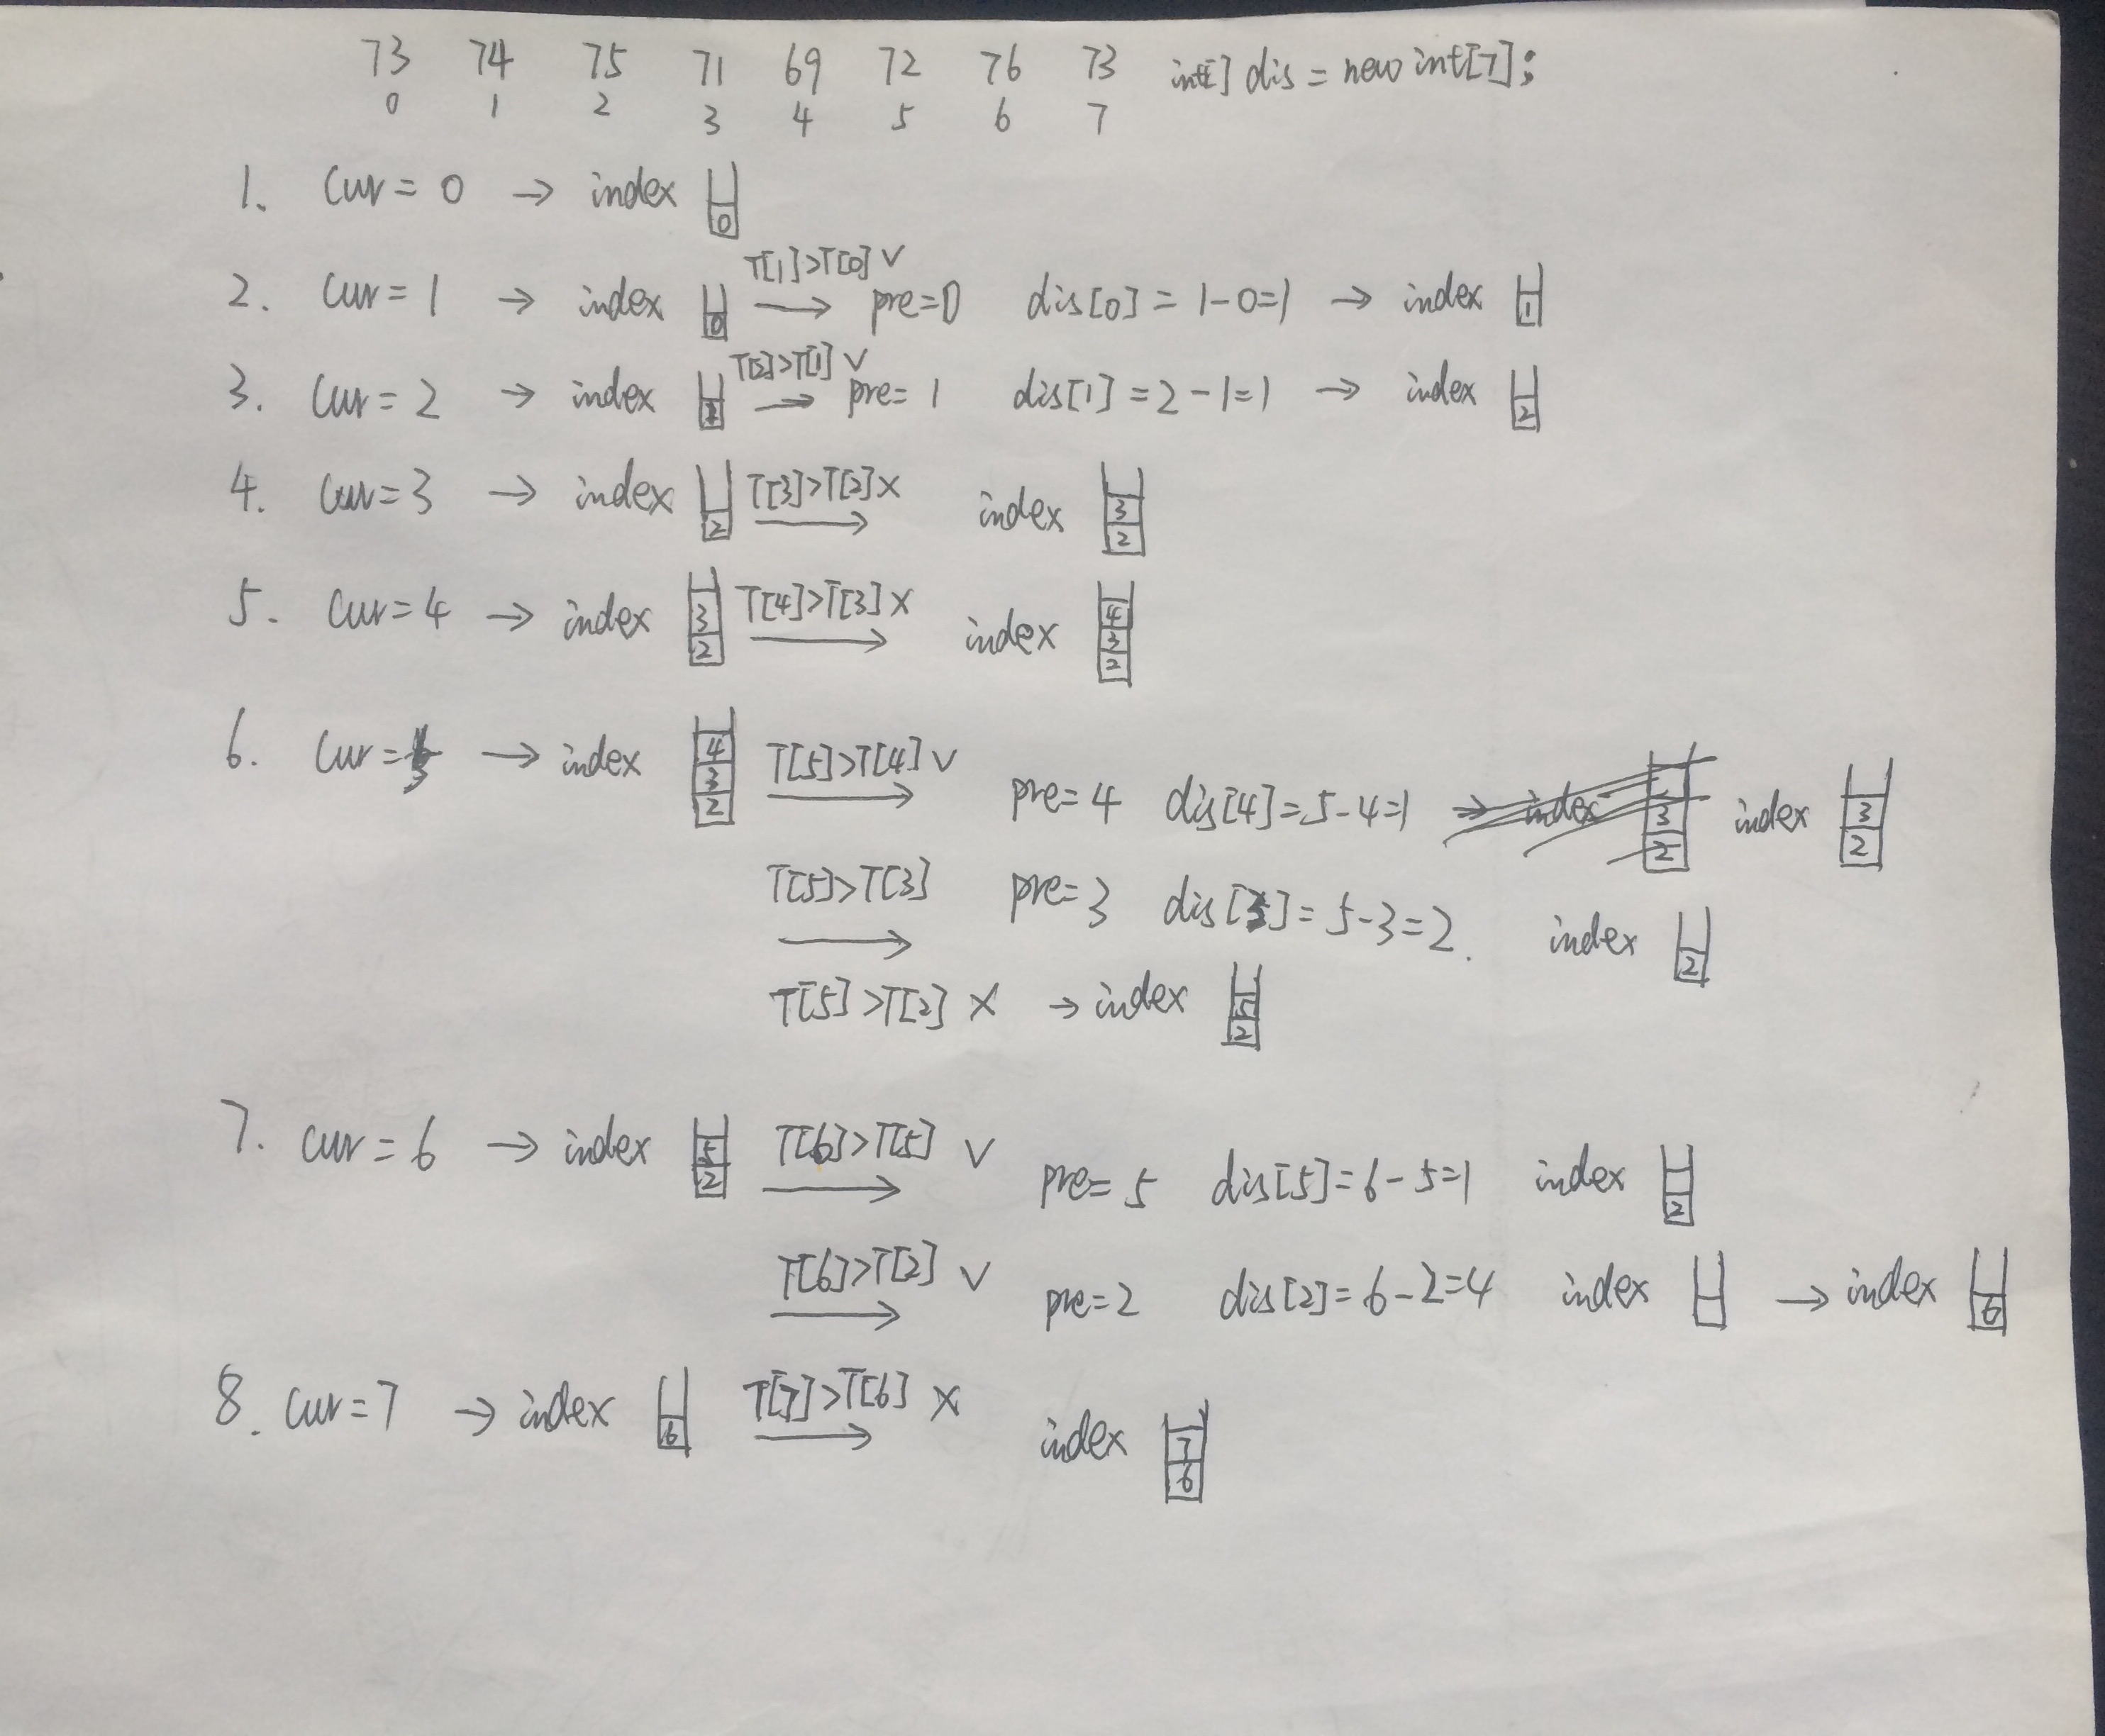 73 74 75 71 69 72 76 73 int[] dis = new int[7];
0 1 2 3 4 5 6 7
1. cur = 0 → index 0
T[1]>T[0] √
2. cur = 1 → index 0 → pre=0 dis[0] = 1-0=1 → index 1
T[2]>T[1] √
3. cur = 2 → index 1 → pre= 1 dis[1] = 2-1=1 → index 2
4. cur=3 → index 2 T[3]>T[2] × → index 3 2
5. cur=4 → index 3 2 T[4]>T[3] × → index 4 3 2
6. cur=5 → index 4 3 2 T[5]>T[4] √ → pre=4 dis[4]=5-4=1 → index 3 2 index 3 2
T[5]>T[3] → pre=3 dis[3]=5-3=2. index 2
T[5]>T[2] × → index 5 2
7. cur=6 → index 5 2 T[6]>T[5] √ → pre=5 dis[5]=6-5=1 index 2
T[6]>T[2] √ → pre=2 dis[2]=6-2=4 index → index 6
8. cur=7 → index 6 T[7]>T[6] × → index 7 6